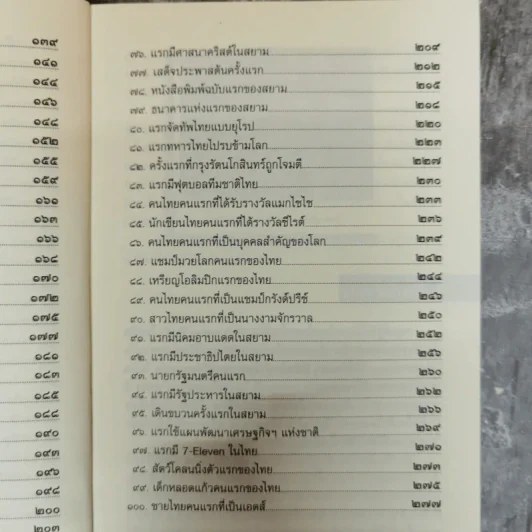 ๑๓๙
๑๔๑
๑๔๔
๑๔๖
๑๔๘
๑๕๒
๑๕๕
๑๕๙
๑๖๑
๑๖๓
๑๖๖
๑๖๘
๑๗๐
๑๗๒
๑๗๕
๑๗๗
๑๘๑
๑๘๓
๑๘๕
๑๘๘
๑๙๐
๑๙๓
๑๙๖
๑๙๘
๒๐๐
๒๐๓
๗๖. แรกมีศาสนาคริสต์ในสยาม ๒๐๙
๗๗. เสด็จประพาสต้นครั้งแรก ๒๑๒
๗๘. หนังสือพิมพ์ฉบับแรกของสยาม ๒๑๕
๗๙. ธนาคารแห่งแรกของสยาม ๒๑๘
๘๐. แรกจัดทัพไทยแบบยุโรป ๒๒๐
๘๑. แรกทหารไทยไปรบข้ามโลก ๒๒๓
๘๒. ครั้งแรกที่กรุงรัตนโกสินทร์ถูกโจมตี ๒๒๗
๘๓. แรกมีฟุตบอลทีมชาติไทย ๒๓๐
๘๔. คนไทยคนแรกที่ได้รับรางวัลแมกไซไซ ๒๓๓
๘๕. นักเขียนไทยคนแรกที่ได้รางวัลซีไรต์ ๒๓๖
๘๖. คนไทยคนแรกที่เป็นบุคคลสำคัญของโลก ๒๓๙
๘๗. แชมป์มวยโลกคนแรกของไทย ๒๔๒
๘๘. เหรียญโอลิมปิกแรกของไทย ๒๔๔
๘๙. คนไทยคนแรกที่เป็นแชมป์กรังด์ปรีซ์ ๒๔๖
๙๐. สาวไทยคนแรกที่เป็นนางงามจักรวาล ๒๕๐
๙๑. แรกมีนิคมอาบแดดในสยาม ๒๕๒
๙๒. แรกมีประชาธิปไตยในสยาม ๒๕๖
๙๓. นายกรัฐมนตรีคนแรก ๒๖๐
๙๔. แรกมีรัฐประหารในสยาม ๒๖๒
๙๕. เดินขบวนครั้งแรกในสยาม ๒๖๖
๙๖. แรกใช้แผนพัฒนาเศรษฐกิจฯ แห่งชาติ ๒๖๙
๙๗. แรกมี 7-Eleven ในไทย ๒๗๑
๙๘. สัตว์โคลนนิ่งตัวแรกของไทย ๒๗๓
๙๙. เด็กหลอดแก้วคนแรกของไทย ๒๗๕
๑๐๐. ชายไทยคนแรกที่เป็นเอดส์ ๒๗๗